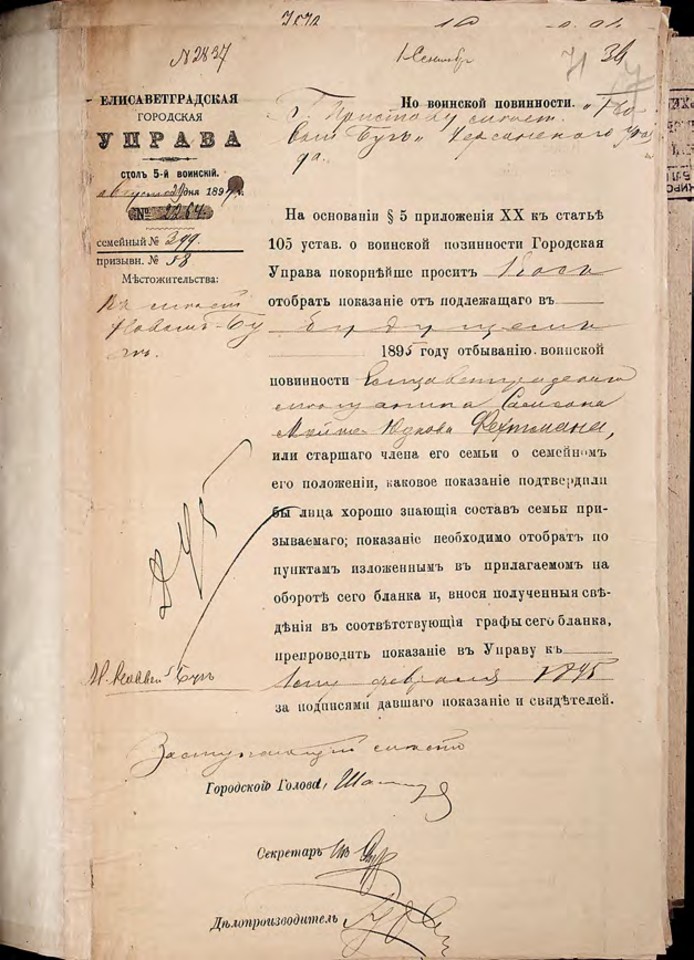 № 2837
1 Сентябр
71 34
ЕЛИСАВЕТГРАДСКАЯ
ГОРОДСКАЯ
УПРАВА
СТОЛЪ 5-й ВОИНСКІЙ.
августа дня 189
№ 2264
семейный № 399.
призывн. № 58
Мѣстожительства:
Въ мѣстеч
Новомъ-Бу
гѣ.
Но воинской повинности.
Г. Приставу мѣстеч. „Но
вый Бугъ“ Херсонскаго уѣз
да.
На основаніи § 5 приложенія XX къ статьѣ
105 устав. о воинской позинности Городская
Управа покорнѣйше проситъ Васъ
отобрать показаніе отъ подлежащаго въ
будущемъ
1895 году отбыванію воинской
повинности Елисаветградскаго
мѣщанина Самсона
Юдкова Фехтмана,
или старшаго члена его семьи о семейномъ
его положеніи, каковое показаніе подтвердили
бы лица хорошо знающія составъ семьи при-
зываемаго; показаніе необходимо отобрать по
пунктамъ изложеннымъ въ прилагаемомъ на
оборотѣ сего бланка и, внося полученныя свѣ-
дѣнія въ соотвѣтствующія графы сего бланка,
препроводить показаніе въ Управу къ
1му февраля 1895
за подписями давшаго показаніе и свидѣтелей.
М. Новый Бугъ
Заступающій мѣсто
Городской Голова,
Секретарь
Дѣлопроизводитель